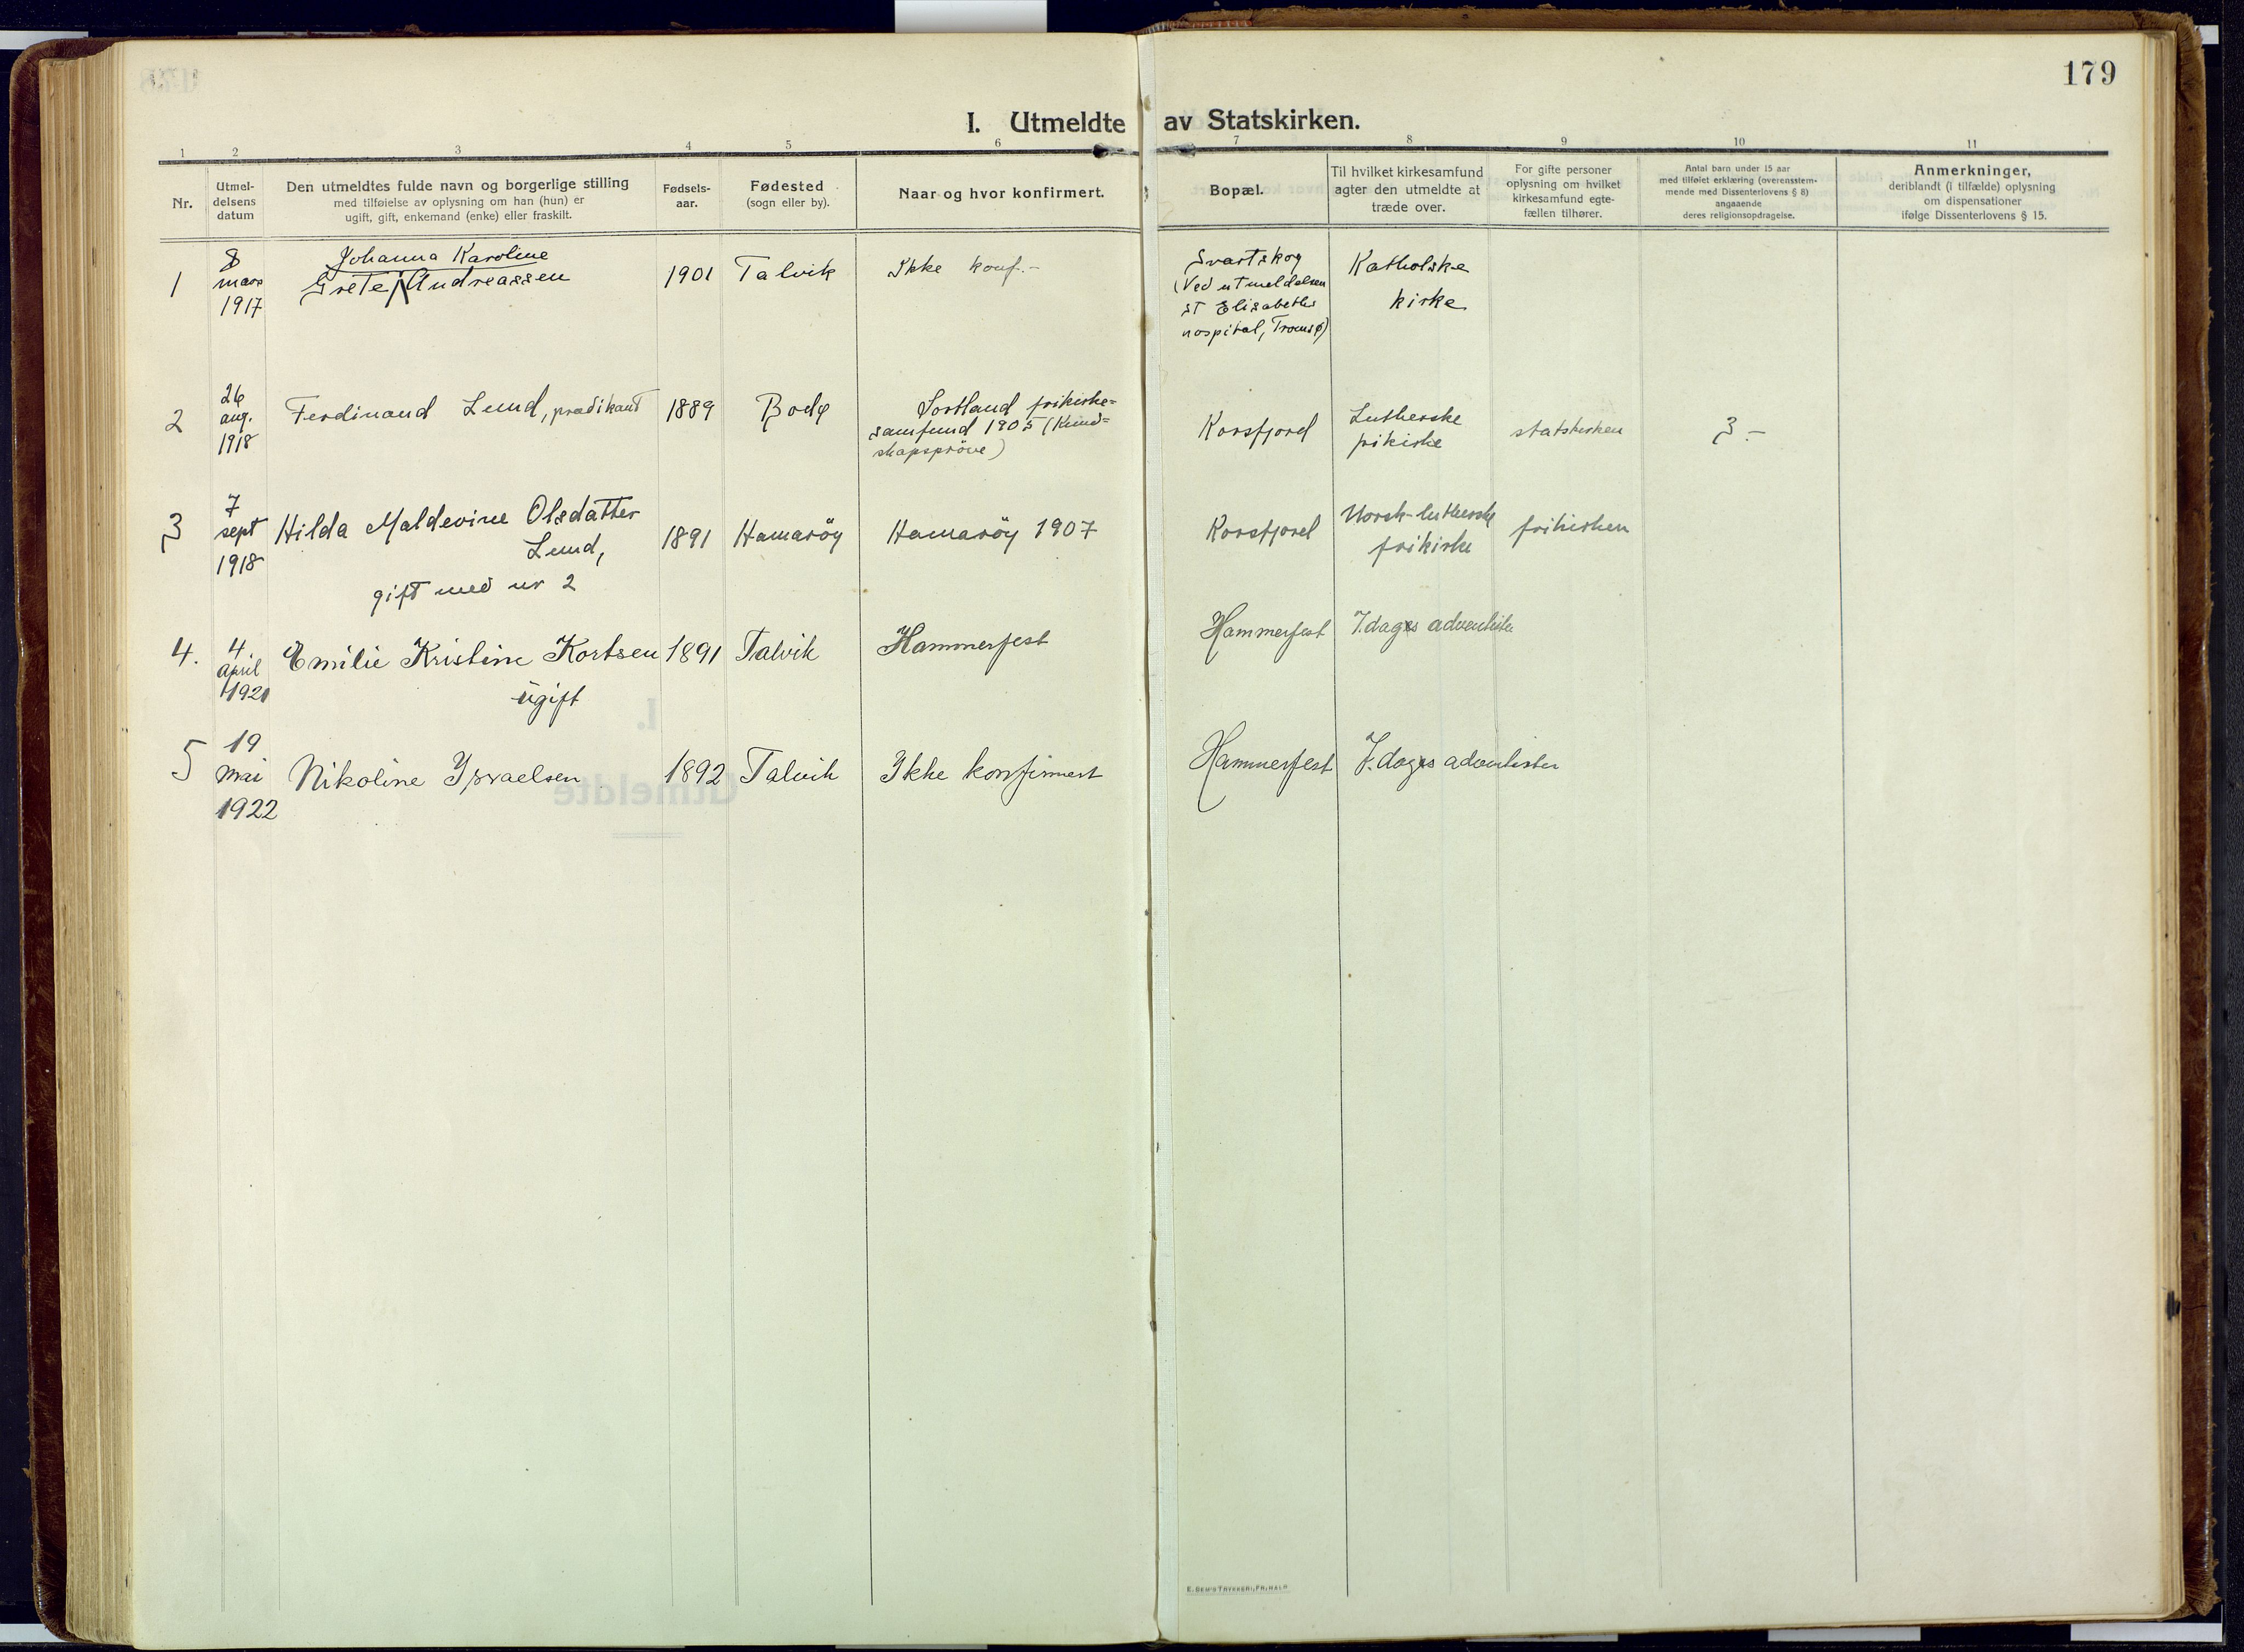 179
I. Utmeldte av Statskirken.
1 2 3 4 5 6 7 8 9 10 11
Nr.
Utmel-
delsens
datum
Den utmeldtes fulde navn og borgerlige stilling
med tilføielse av oplysning om han (hun) er
ugift, gift, enkemand (enke) eller fraskilt.
Fødsels-
aar.
Fødested
(sogn eller by).
Naar og hvor konfirmert.
Bopæl.
Til hvilket kirkesamfund
agter den utmeldte at
træde over.
For gifte personer
oplysning om hvilket
kirkesamfund egte-
fællen tilhører.
Antal barn under 15 aar
med tilføiet erklæring (overensstem-
mende med Dissenterlovens § 8)
angaaende
deres religionsopdragelse.
Anmerkninger,
deriblandt (i tilfælde) oplysning
om dispensationer
ifølge Dissenterlovens § 15.
1
8
mars
1917
Johanna Karoline
Grete Andreassen
1901
Talvik
Ikke konf.-
Svartskog
(Ved utmeldelsen
St Elisabeths
hospital, Tromsø)
Katholske
kirke
2
26
aug.
1918
Ferdinand Lund, prædikant
1889
Bodø
Sortland frikirke=
samfund 1905 (Kund=
skapsprøve)
Korsfjord
Lutherske
frikirke
statskirken
3.-
3
7
sept
1918
Hilda Maldevine Olsdatter
Lund,
gift med nr 2
1891
Hamarøy
Hamarøy 1907
Korsfjord
Norsk-lutherske
frikirke
frikirken
4.
4.
april
1921
Emilie Kristine Kortsen
ugift
1891
Talvik
Hammerfest
Hammerfest
7.dags adventister
5
19
mai
1922
Nikoline Israelsen
1892
Talvik
Ikke konfirmert
Hammerfest
7.dags adventister
E. SEM'S TRYKKERI, FR.HALD